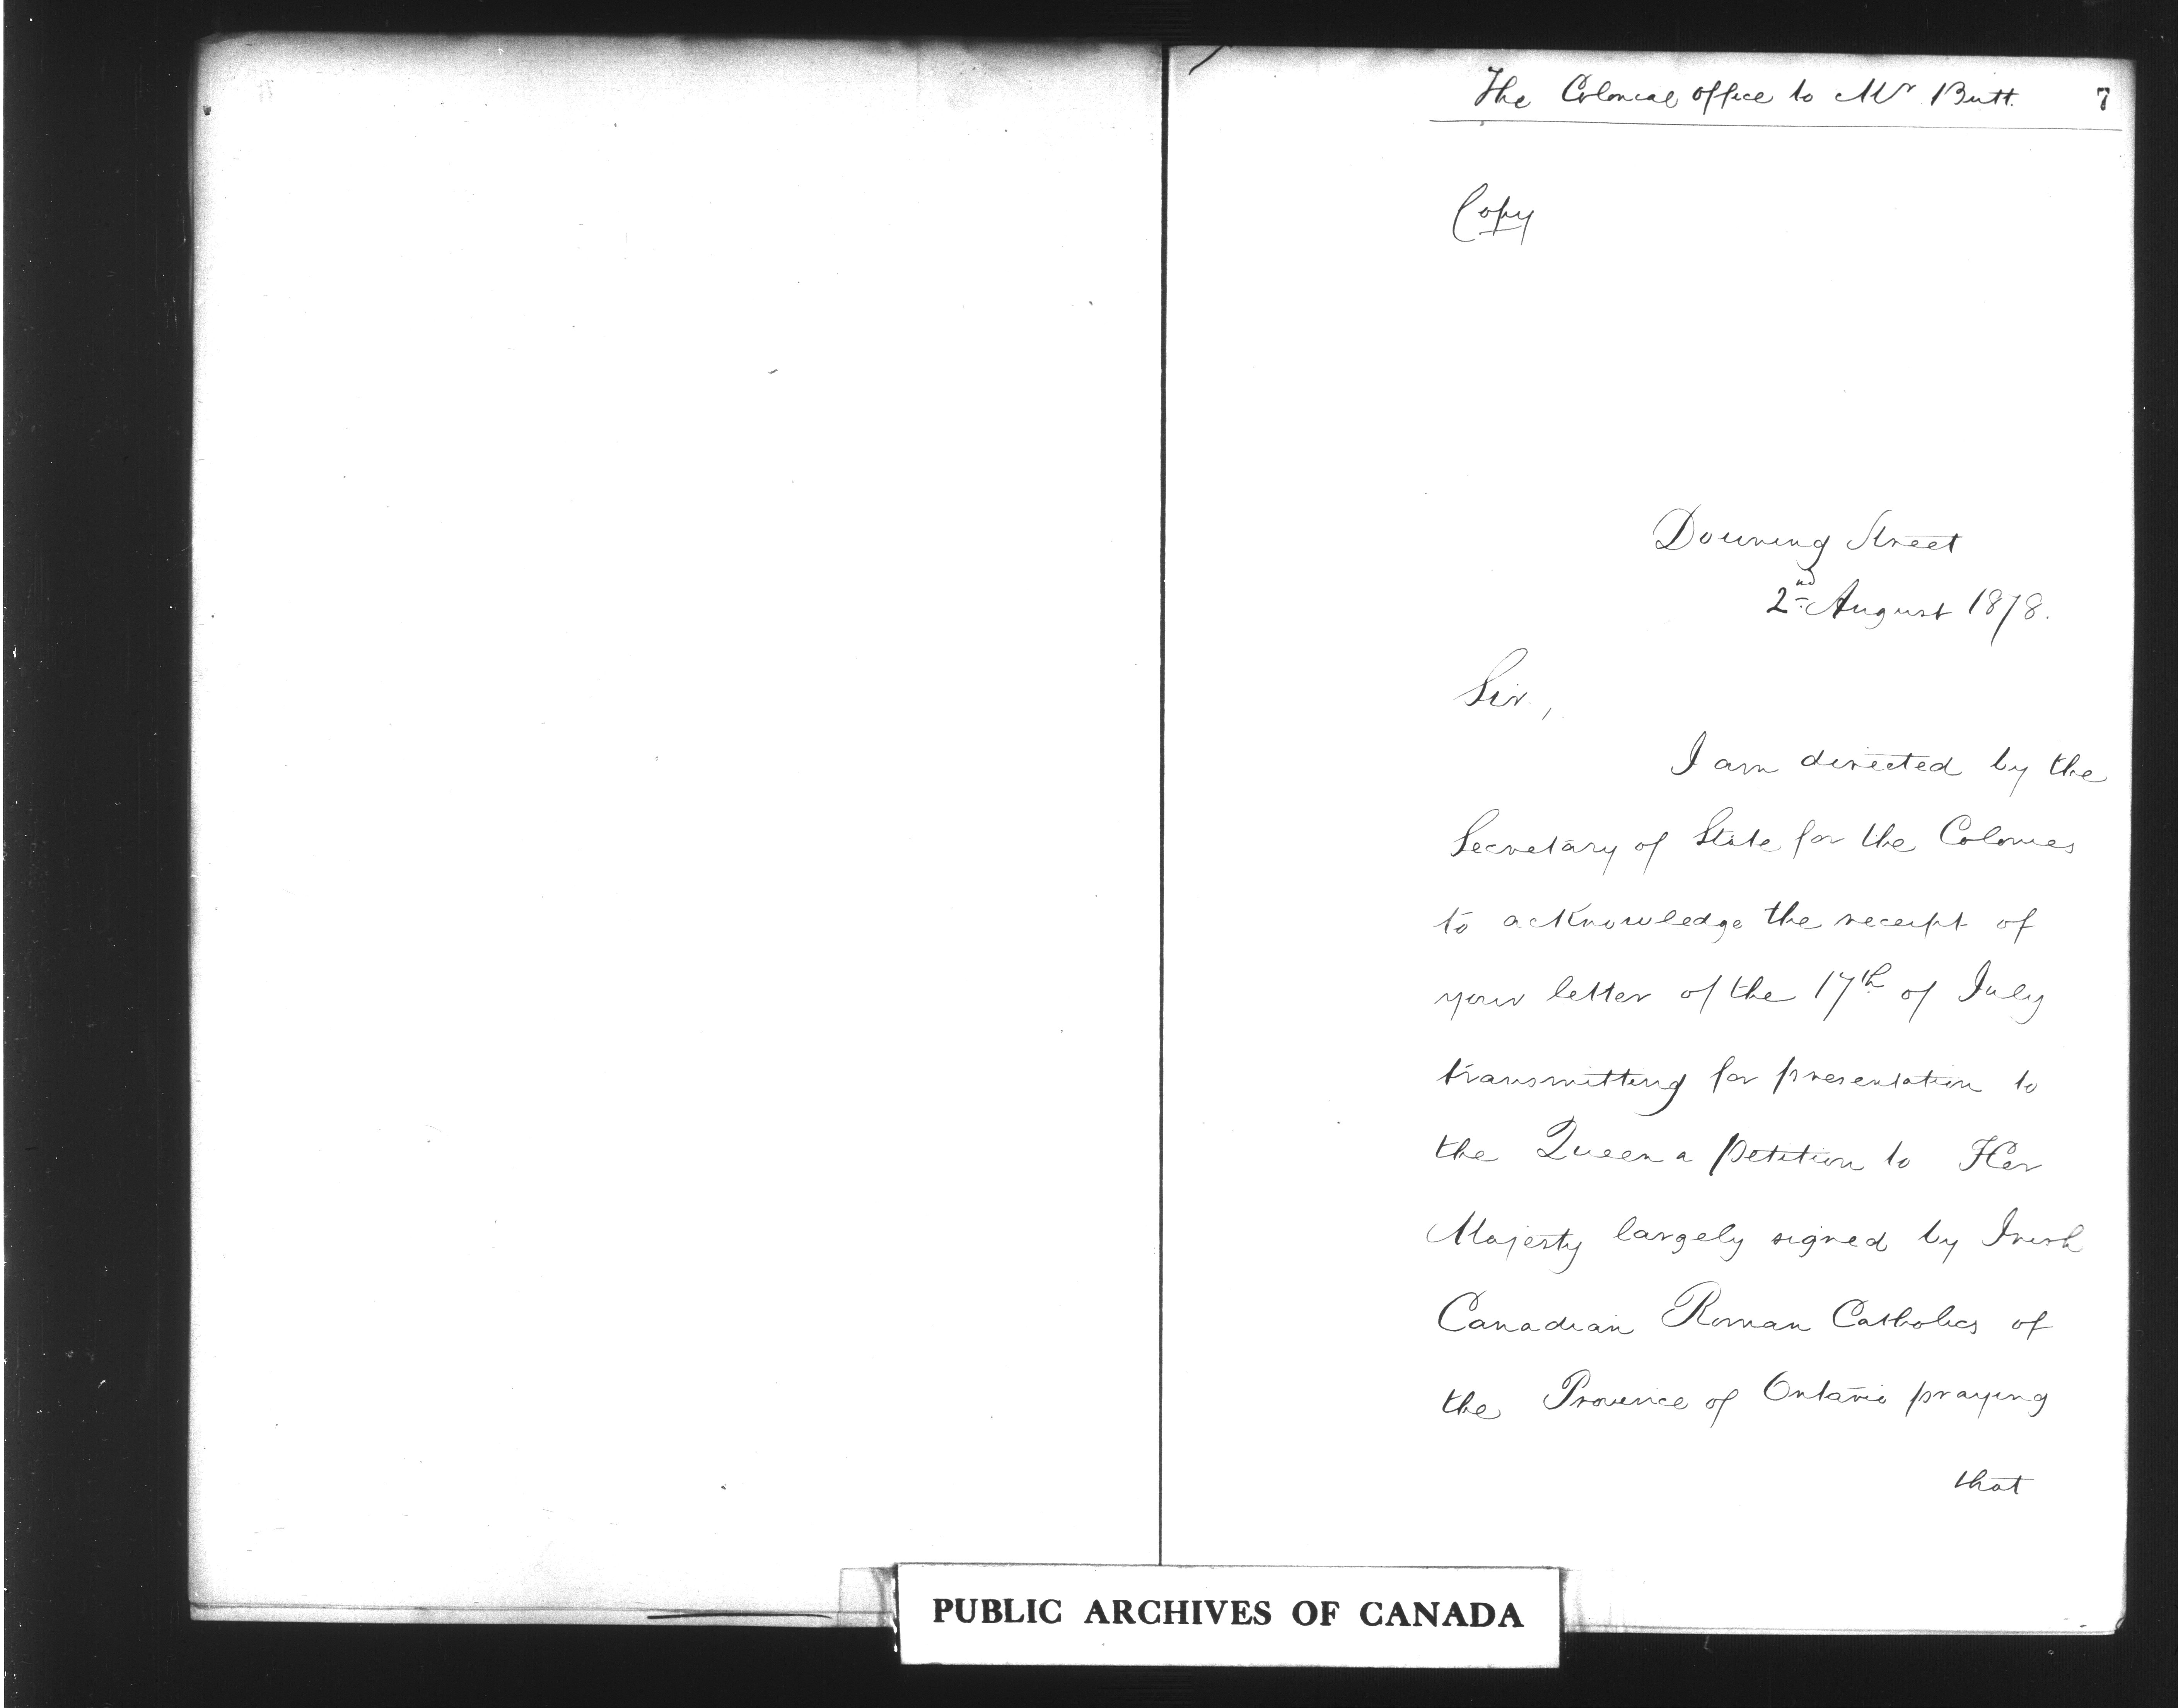 The Colonial Office to Mr Butt. 7
Copy
Downing Street
2nd August 1878.
Sir,
I am directed by the
Secretary of State for the Colonies
to acknowledge the receipt of
your letter of the 17th of July
transmitting for presentation to
the Queen a petition to Her
Majesty largely signed by Irish
Canadian Roman Catholics of
the Province of Ontario praying
that
PUBLIC ARCHIVES OF CANADA